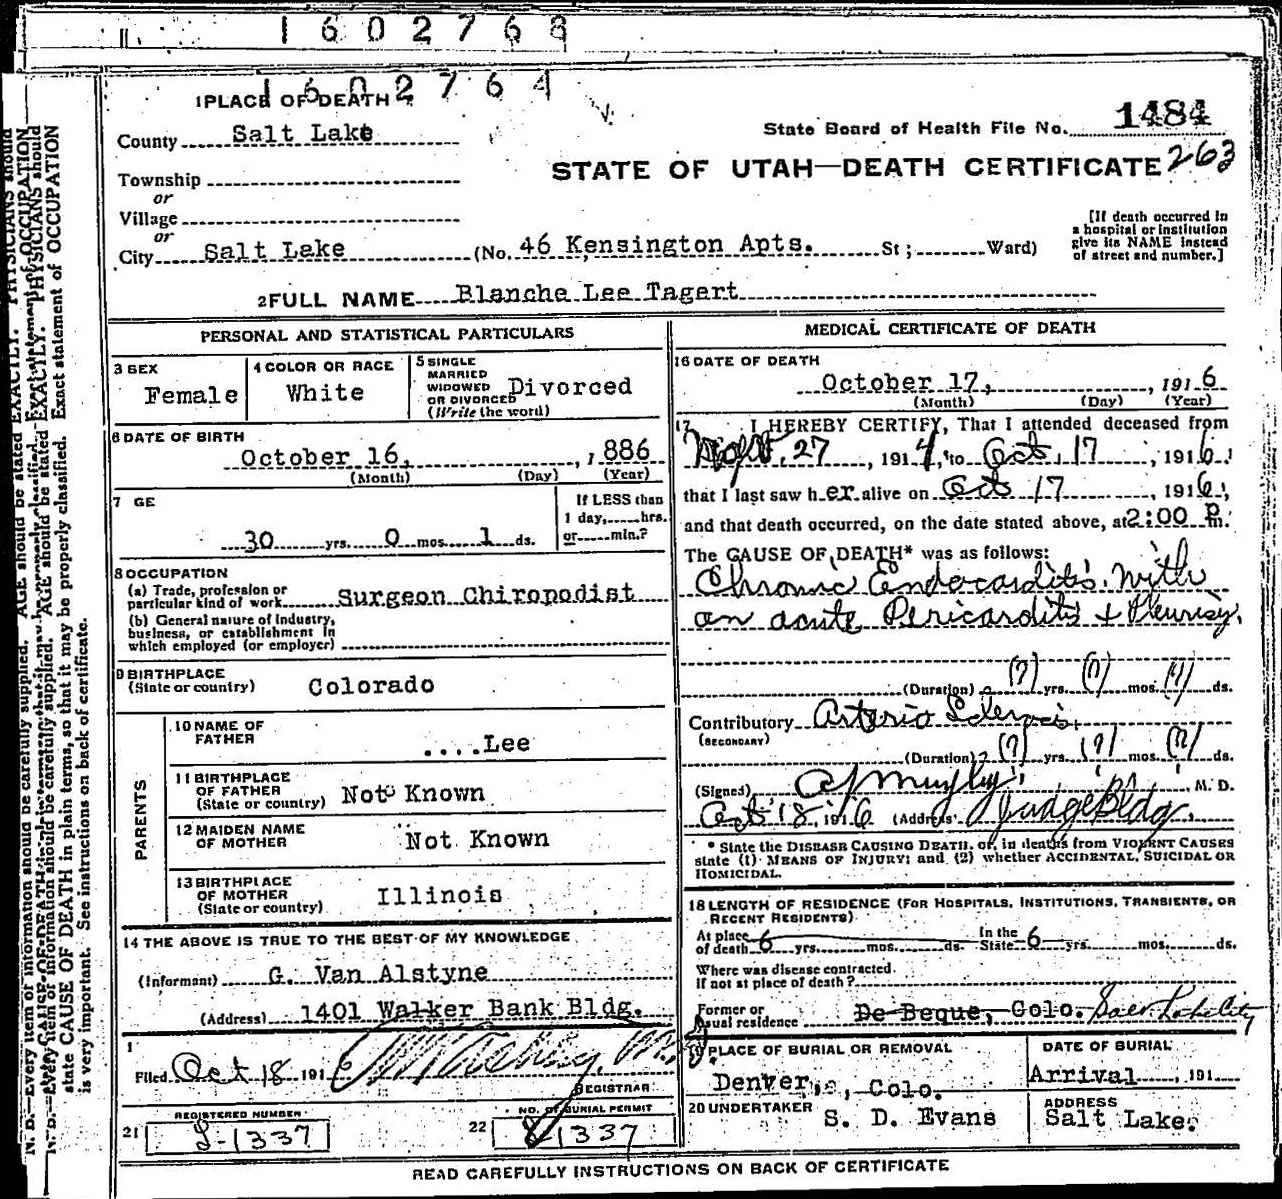 1602768
1602764
1 PLACE OF DEATH
County Salt Lake
State Board of Health File No. 1484
STATE OF UTAH—DEATH CERTIFICATE 263
Township
or
Village
or
City Salt Lake (No. 46 Kensington Apts. St; Ward)
[If death occurred in
a hospital or institution
give its NAME instead
of street and number.]
2 FULL NAME Blanche Lee Tagert
PERSONAL AND STATISTICAL PARTICULARS
3 SEX
Female
4 COLOR OR RACE
White
5 SINGLE
MARRIED
WIDOWED
OR DIVORCED
(Write the word)
Divorced
6 DATE OF BIRTH
October 16, , 1886
(Month) (Day) (Year)
7 GE
30 yrs. 0 mos. 1 ds.
If LESS than
1 day, hrs.
or min.?
8 OCCUPATION
(a) Trade, profession or
particular kind of work Surgeon Chiropodist
(b) General nature of Industry,
business, or establishment in
which employed (or employer)
9 BIRTHPLACE
(State or country) Colorado
PARENTS
10 NAME OF
FATHER ....Lee
11 BIRTHPLACE
OF FATHER
(State or country) Not Known
12 MAIDEN NAME
OF MOTHER Not Known
13 BIRTHPLACE
OF MOTHER
(State or country) Illinois
14 THE ABOVE IS TRUE TO THE BEST OF MY KNOWLEDGE
(Informant) G. Van Alstyne
(Address) 1401 Walker Bank Bldg.
Filed Oct 18 191
REGISTRAR
REGISTERED NUMBER
21
NO. OF BURIAL PERMIT
22
1337
MEDICAL CERTIFICATE OF DEATH
16 DATE OF DEATH
October 17, , 1916
(Month) (Day) (Year)
17 I HEREBY CERTIFY, That I attended deceased from
27, 1914, to Oct. 17, 1916,
that I last saw her alive on Oct 17, 1916,
and that death occurred, on the date stated above, at 2:00 P m.
The CAUSE OF DEATH* was as follows:
Chronic Endocarditis with
an acute Pericarditis & Pleurisy.
(Duration) (?) yrs. (?) mos. (?) ds.
Contributory Arterio Sclerosis
(SECONDARY)
(Duration) (?) yrs. (?) mos. (?) ds.
(Signed) M. D.
Oct 18, 1916 (Address) Judge Bldg.
* State the DISEASE CAUSING DEATH, or, in deaths from VIOLENT CAUSES
state (1) MEANS OF INJURY; and (2) whether ACCIDENTAL, SUICIDAL OR
HOMICIDAL.
18 LENGTH OF RESIDENCE (FOR HOSPITALS, INSTITUTIONS, TRANSIENTS, OR
RECENT RESIDENTS)
At place
of death 6 yrs. mos. ds.
In the
State 6 yrs. mos. ds.
Where was disease contracted
if not at place of death?
Former or
usual residence De Beque, Colo.
19 PLACE OF BURIAL OR REMOVAL
Denver, Colo.
DATE OF BURIAL
Arrival , 191
20 UNDERTAKER
S. D. Evans
ADDRESS
Salt Lake.
READ CAREFULLY INSTRUCTIONS ON BACK OF CERTIFICATE
state CAUSE OF DEATH in plain terms, so that it may be properly classified. Exact statement of OCCUPATION
is very important. See instructions on back of certificate.